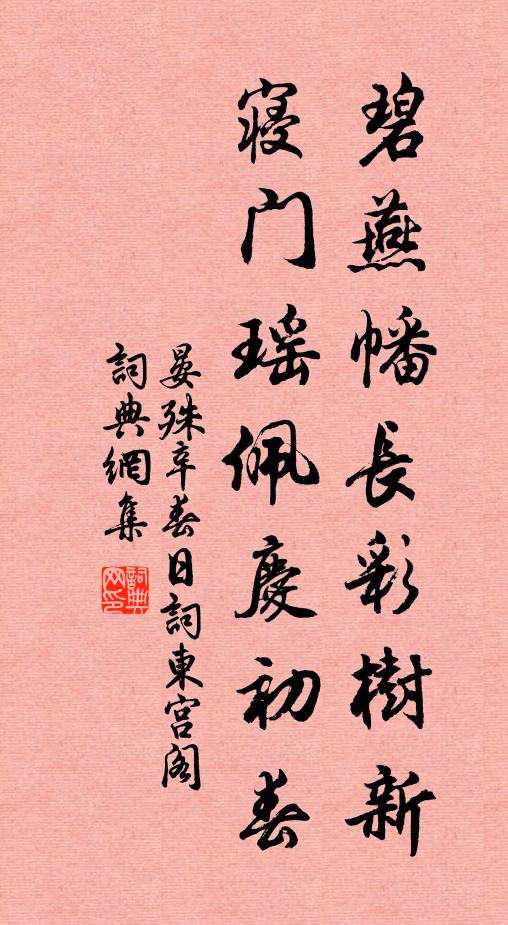 碧燕幡長彩樹新
寝门瑶佩慶初春
晏殊辛春日詞東宫阁
詞典網集
詞典网印